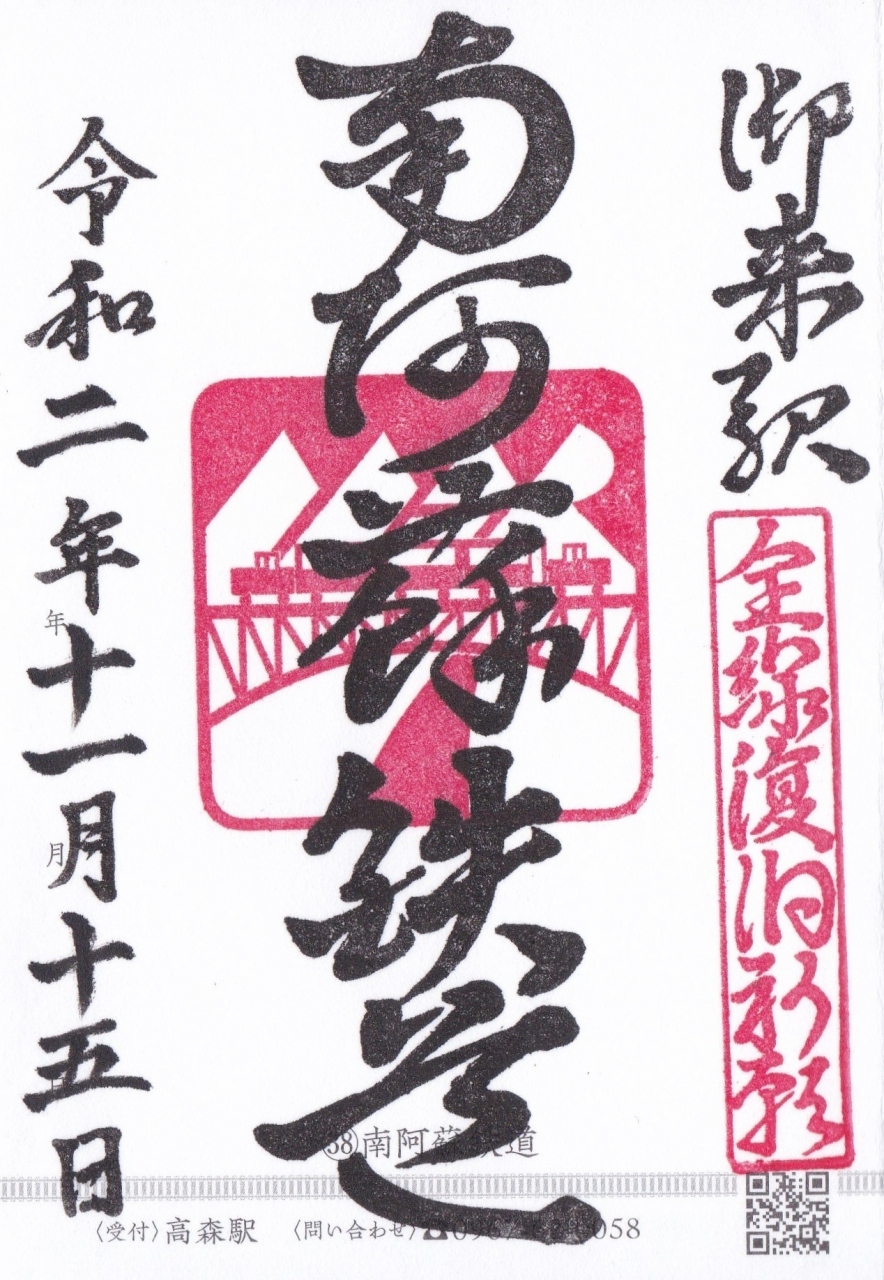 御来駅
全線復旧祈願
南阿蘇鉄道
令和二年十一月十五日
年
月
㊳南阿蘇鉄道
〈受付〉高森駅 〈問い合わせ〉☎